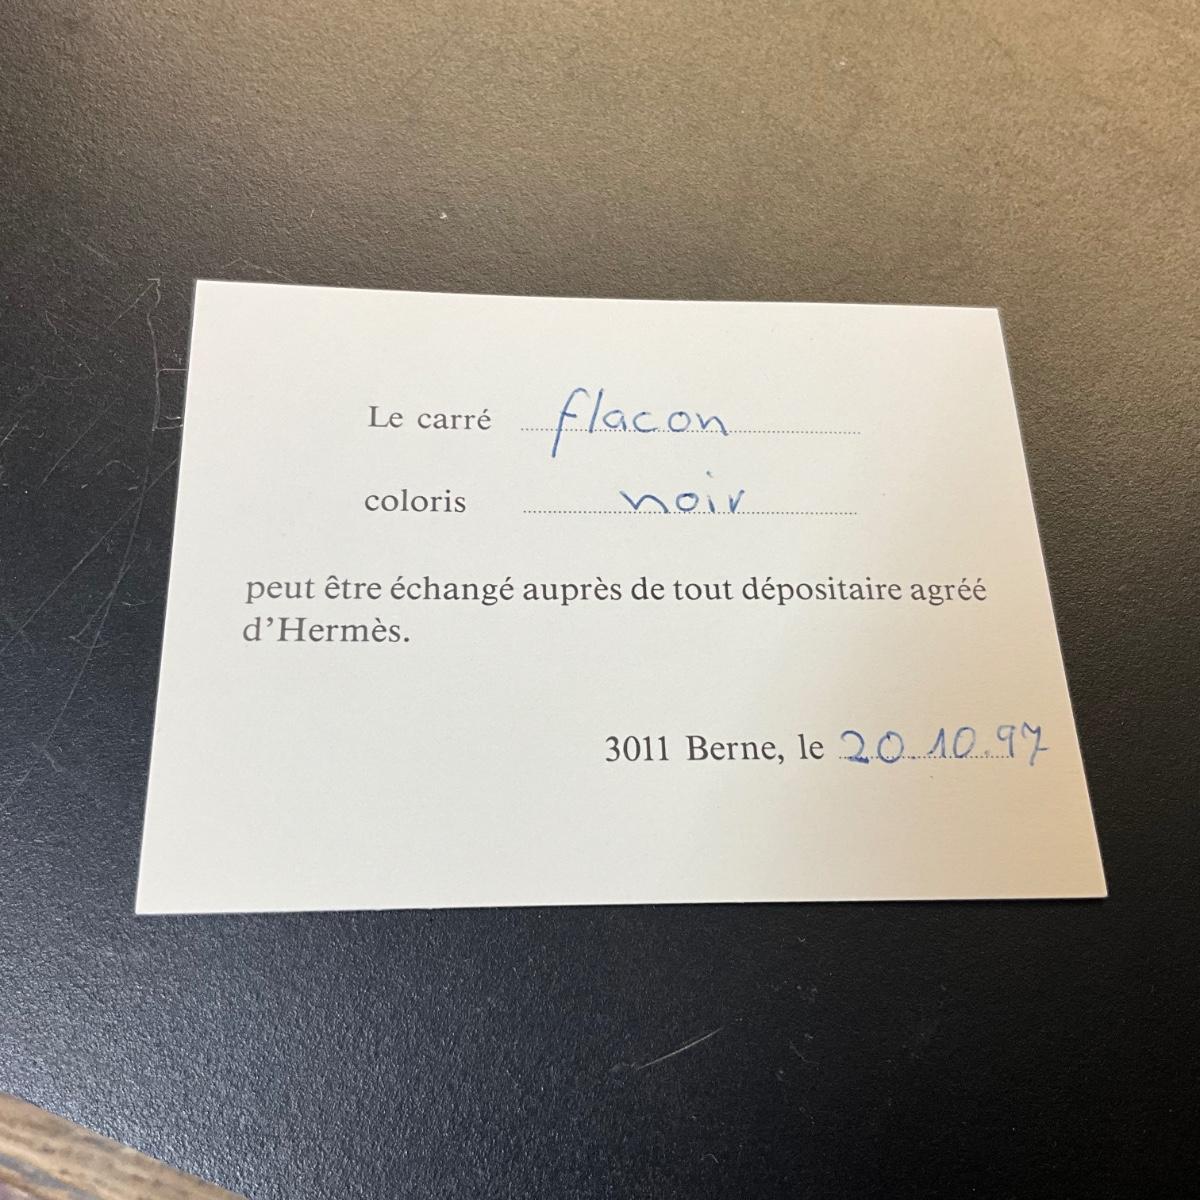 Le carré flacon
coloris noir
peut être échangé auprès de tout dépositaire agréé
d'Hermès.
3011 Berne, le 20.10.97